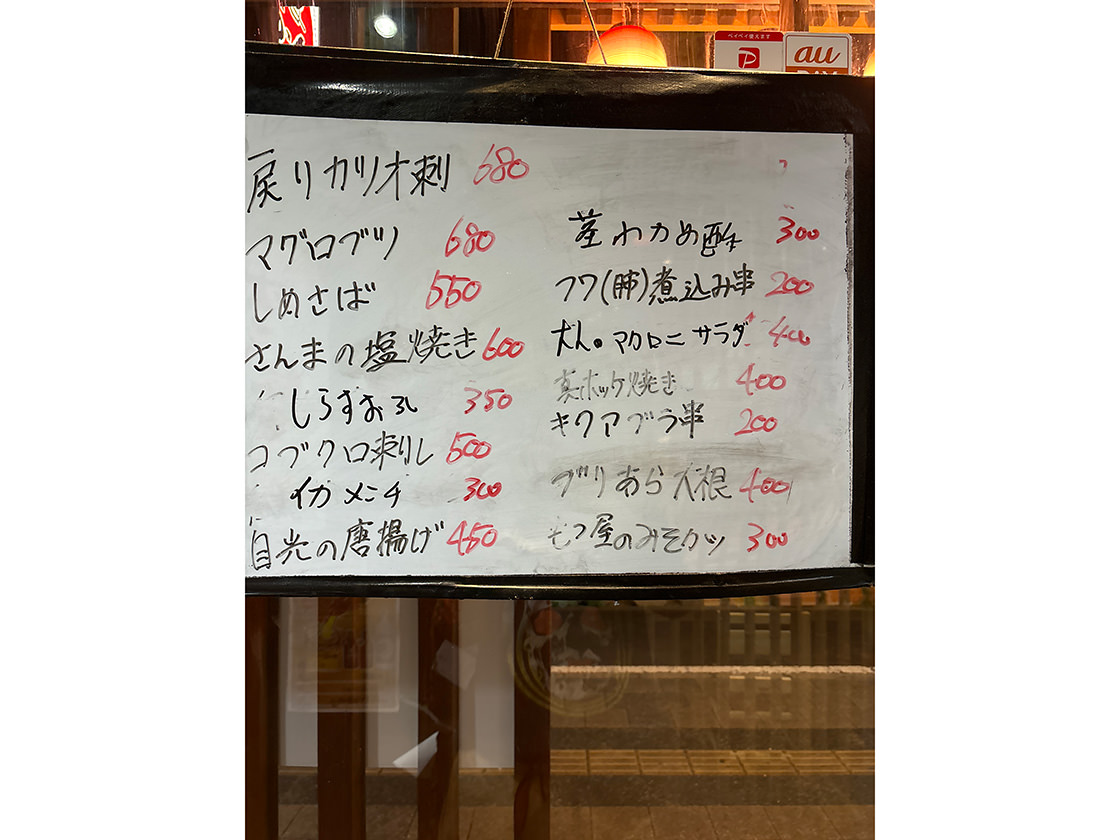 ペイペイ使えます
au
PAY
戻りカツオ刺 680
マグロブツ 680
しめさば 550
さんまの塩焼き 600
しらすおろし 350
コブクロ刺し 500
イカメンチ 300
目光の唐揚げ 450
茎わかめ酢 300
フワ(肺)煮込み串 200
大人。マカロニサラダ 400
真ホッケ焼き 400
キクアブラ串 200
ブリあら大根 400
もつ屋のみそカツ 300